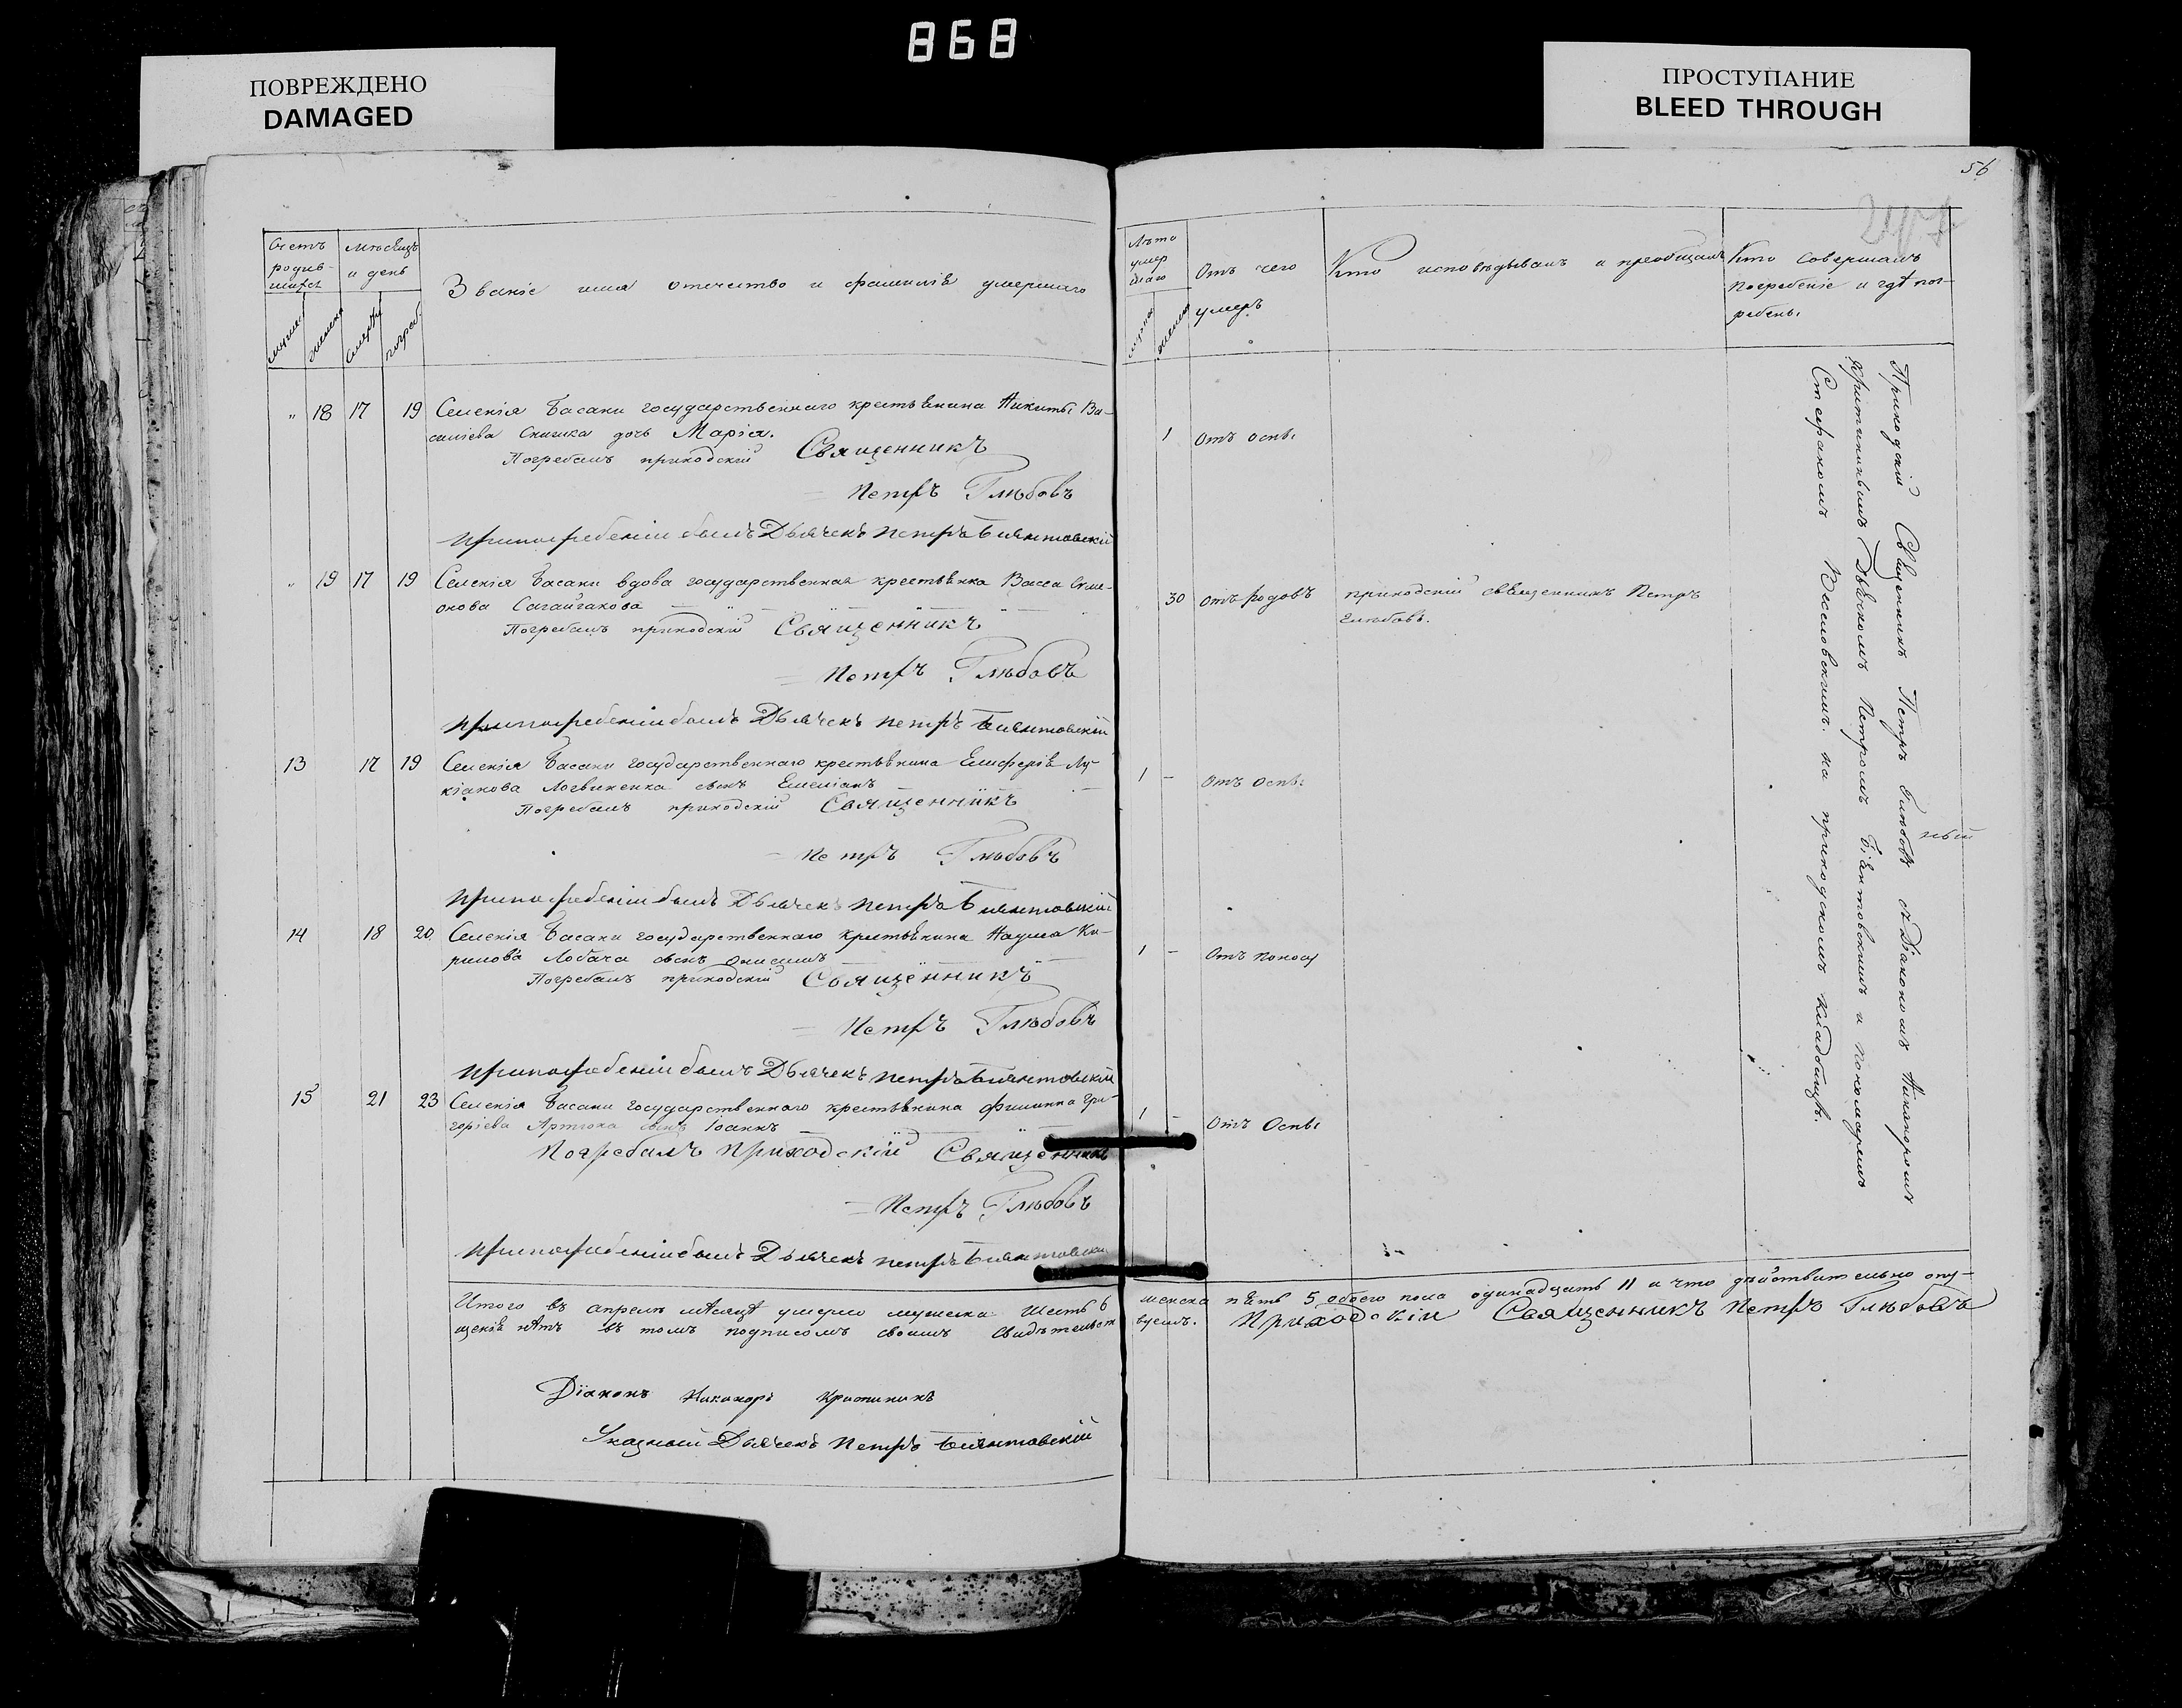 868
ПОВРЕЖДЕНО
DAMAGED
ПРОСТУПАНИЕ
BLEED THROUGH
56
Счетъ
родив-
шихся
Мѣсяцъ
и день
Званіе имя отечество и фамилія умершаго
Лѣто
умер
шаго
Отъ чего
умеръ
Кто исповѣдывалъ и пріобщалъ
Кто совершалъ
погребеніе и гдѣ пог-
ребены
" 18 17 19 Селенія Басани государственнаго крестьянина Никиты Ва-
силіева дочь Марія.
1 Отъ оспы
Погребалъ приходскій Священникъ
Петръ Глѣбовъ
При погребеніи былъ Дьячекъ Петръ Біянтовскій
" 19 17 19 Селенія Басани вдова государственная крестьянка Васса Симе-
онова Сагайдакова
30 Отъ родовъ приходскій священникъ Петръ
Глѣбовъ.
Погребалъ приходскій Священникъ
Петръ Глѣбовъ
При погребеніи былъ Дьячекъ Петръ Біянтовскій
13 17 19 Селенія Басани государственнаго крестьянина Елиферія Лу-
кіанова Логвиненка сынъ Емеліанъ
1 - Отъ оспы
Погребалъ приходскій Священникъ
Петръ Глѣбовъ
При погребеніи былъ Дьячекъ Петръ Біянтовскій
14 18 20 Селенія Басани государственнаго крестьянина Наума Ки-
рилова Лобача сынъ Онисимъ
1 - Отъ поносу
Погребалъ приходскій Священникъ
Петръ Глѣбовъ
При погребеніи былъ Дьячекъ Петръ Біянтовскій
15 21 23 Селенія Басани государственнаго крестьянина Филиппа Гри-
горіева сынъ Іоаннъ
1 - Отъ Оспы
Погребалъ приходскій Священникъ
Петръ Глѣбовъ
При погребеніи былъ Дьячекъ Петръ Біянтовскій
Приходскій Священникъ Петръ Глѣбовъ с Діакономъ Никаноромъ
Дьячкомъ Петромъ Біантовскимъ и пономаремъ
Стефаномъ Веселовскимъ на приходскомъ кладбищѣ.
Итого въ апрелѣ мѣсяцѣ умерло мужеска шесть 6 женска пять 5 обоего пола одинадцать 11 и что дѣйствительно опу-
щенія нѣтъ въ томъ подписомъ своимъ свидѣтельствуемъ. Приходскій Священникъ Петръ Глѣбовъ
Діаконъ Никаноръ
Указный Дьячекъ Петръ Біянтовскій